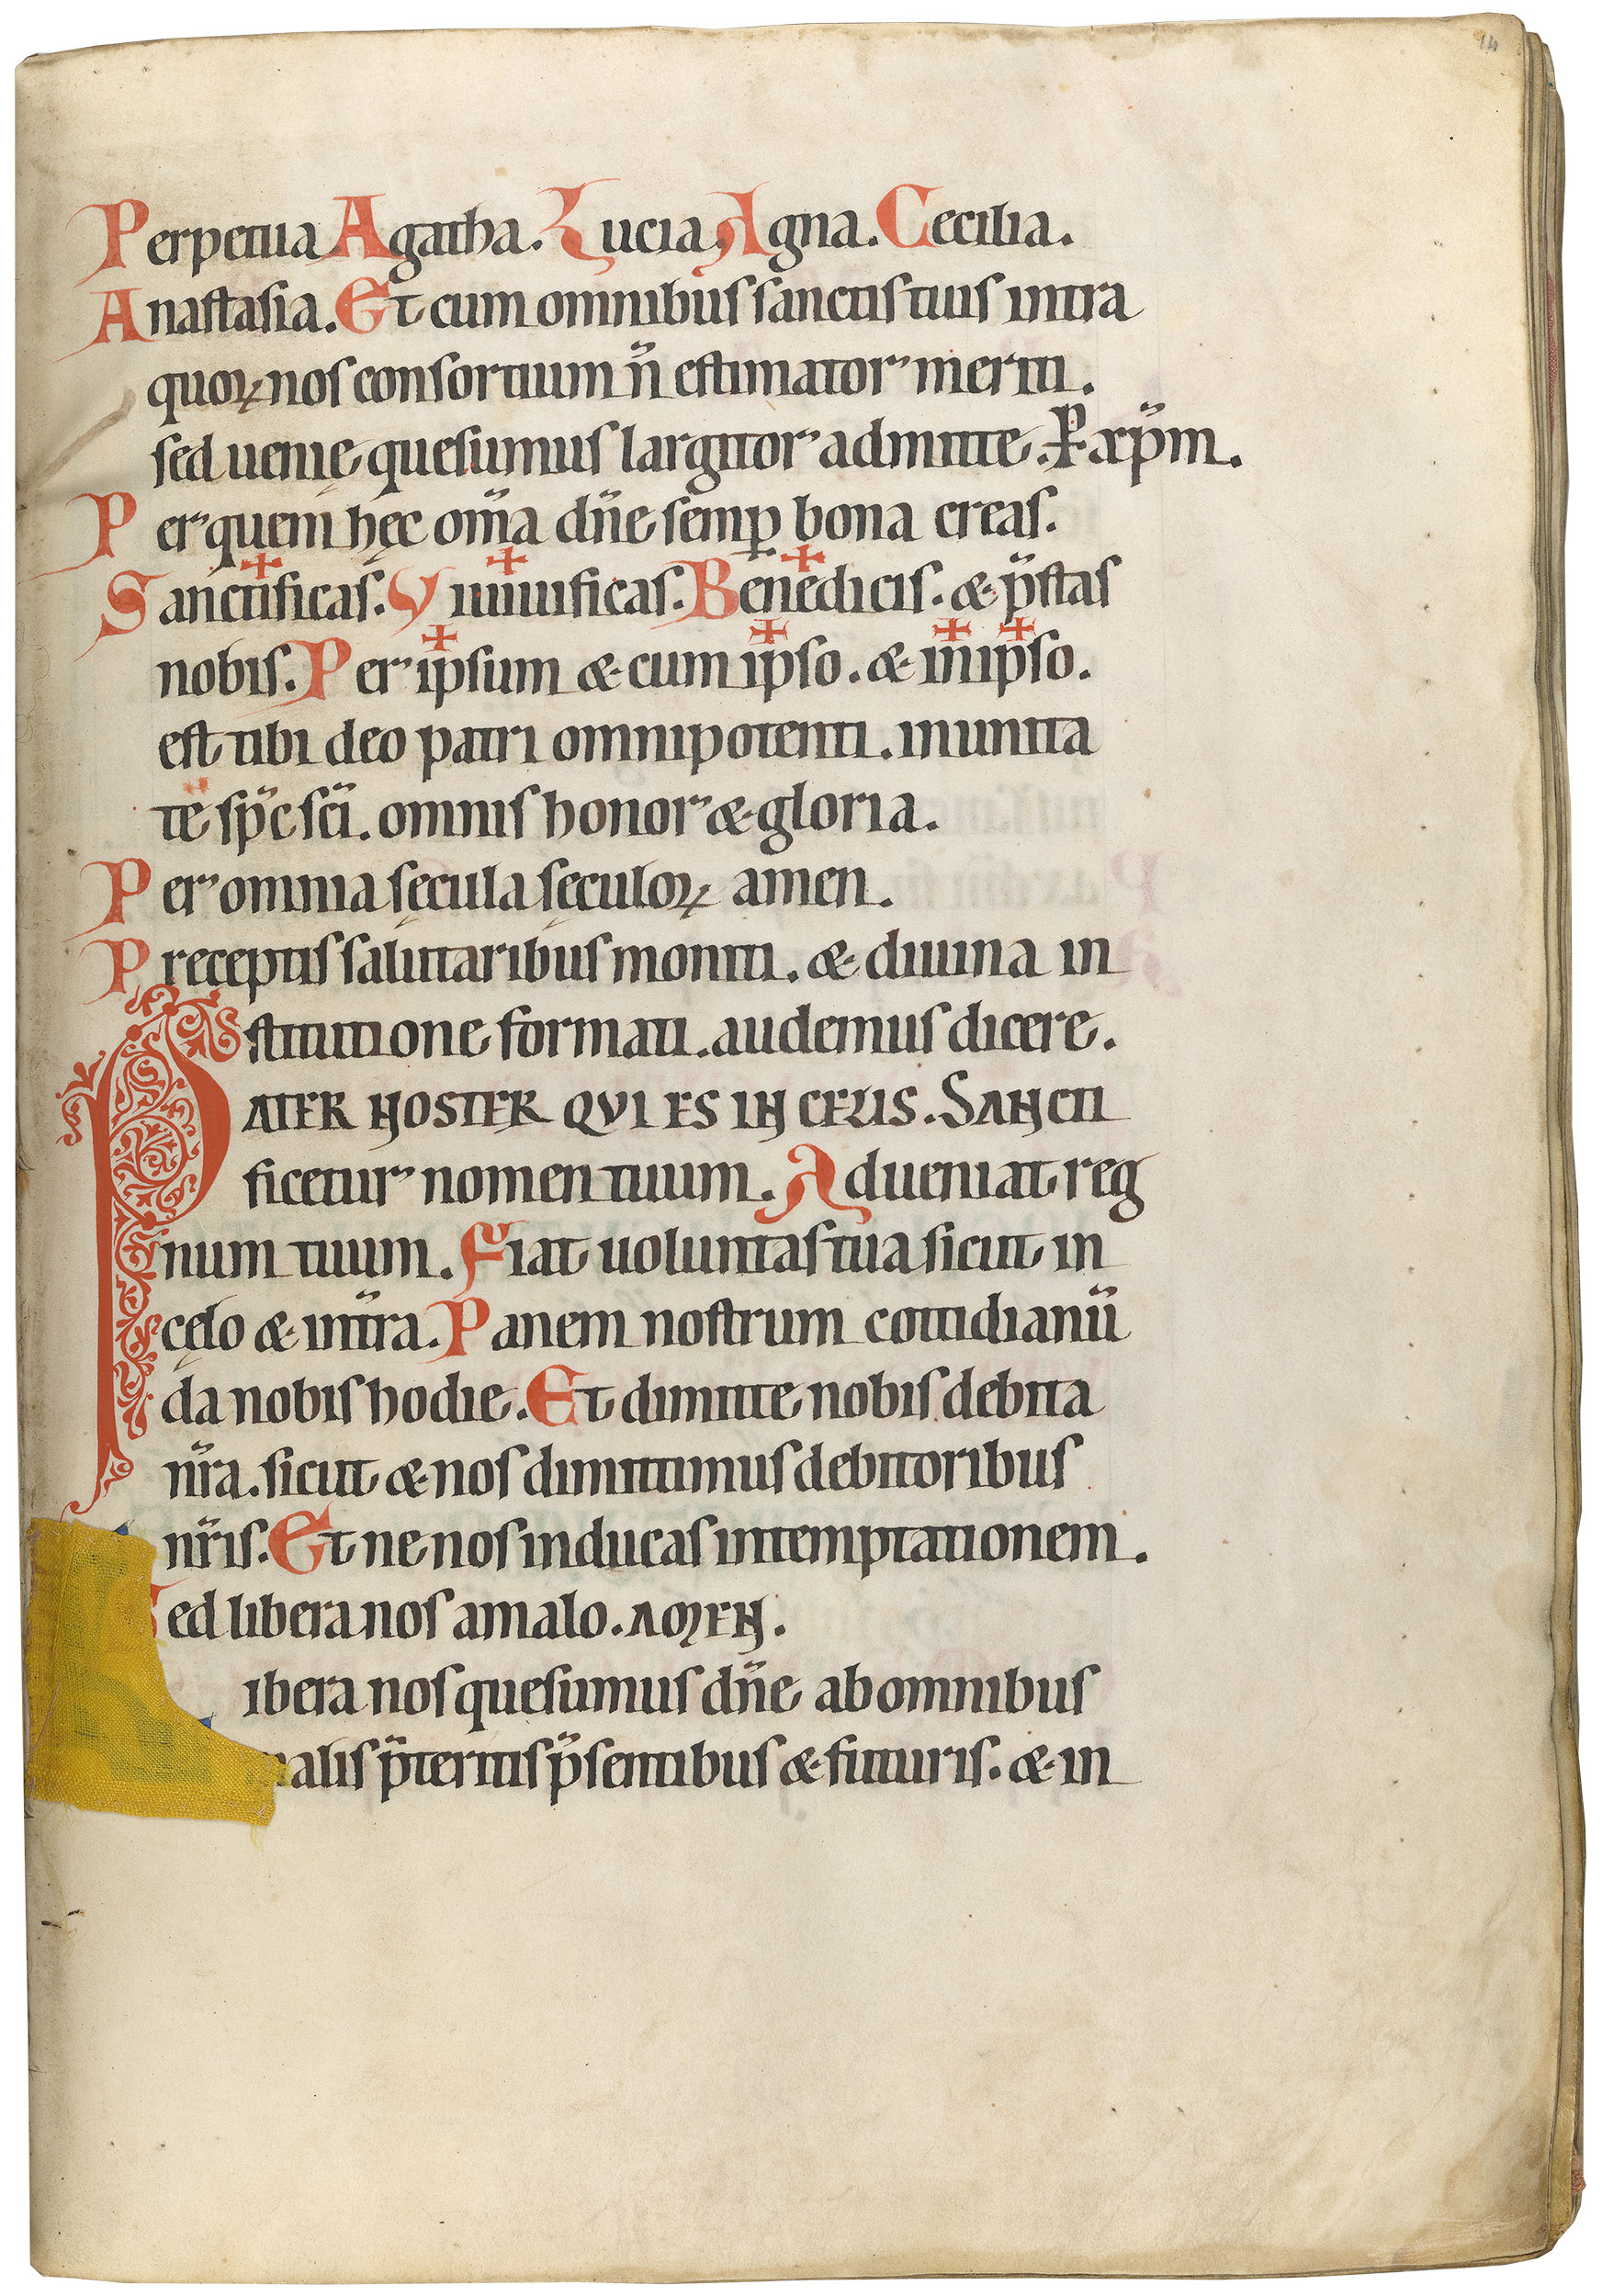 14
Perpetua Agatha. Lucia. Agna. Cecilia.
Anastasia. Et cum omnibus sanctis tuis intra
quoꝝ nos consortium n̄ estimator meriti.
sed uenię quesumus largitor admitte. P̲ xp̄m.
Per quem hęc om̄a dn̄e semꝑ bona creas.
Sanctificas. Viuuificas. Benedicis. & p̄stas
nobis. Per ipsum & cum ipso. & in ipso.
est tibi deo patri omnipotenti. in unita
te sp̄c sc̄i. omnis honor & gloria.
Per omnia sęcula sęculoꝝ amen.
Preceptis salutaribus moniti. & diuina in
stitutione formati. audemus dicere.
PATER NOSTER QVI ES IN CELIS. SANCTI
ficetur nomen tuum. Adueniat reg
num tuum. Fiat uoluntas tua sicut in
cęlo & in t̄ra. Panem nostrum cottidianū
da nobis hodie. Et dimitte nobis debita
nr̄a. sicut & nos dimittimus debitoribus
nr̄is. Et ne nos inducas in temptationem.
Sed libera nos a malo. AMEN.
ibera nos quesumus dn̄e ab omnibus
malis p̄teritis p̄sentibus & futuris. & in